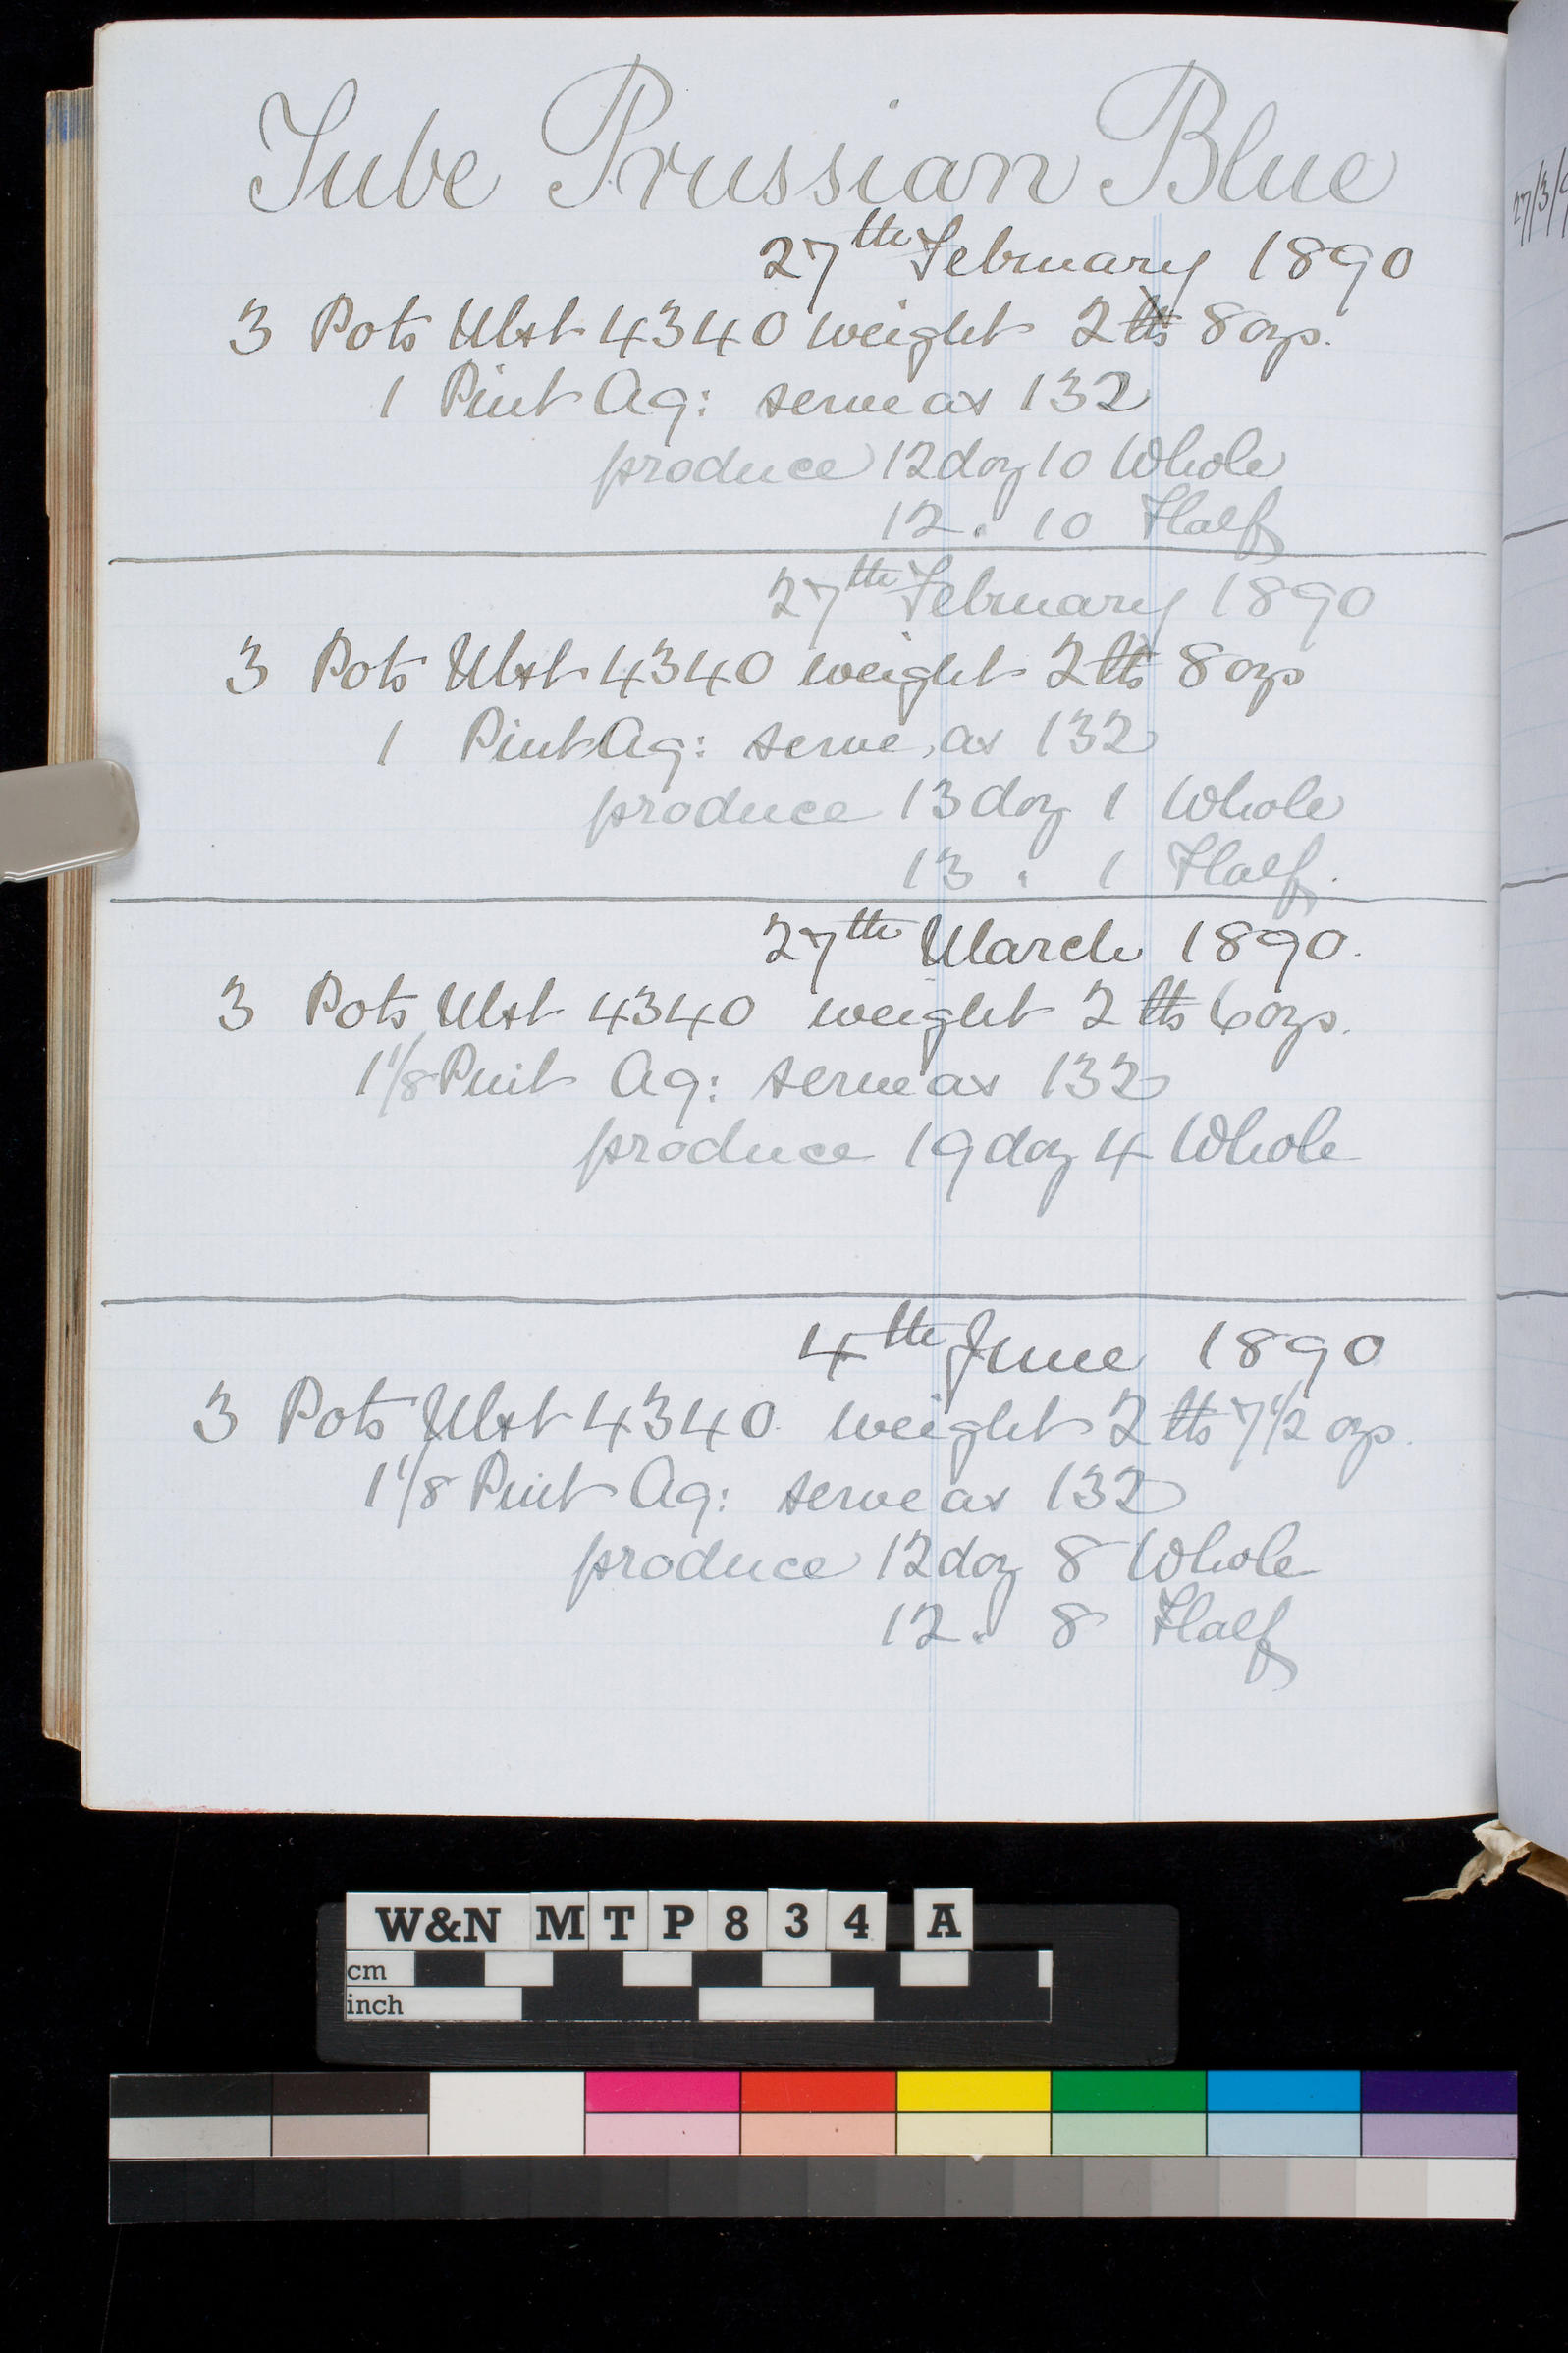 Tube Prussian Blue
27th February 1890
3 Pots Ulst 4340 weight 2 lbs 8 ozs.
1 Pint Aq: serve as 132
produce 12 doz 10 Whole
12 . 10 Half
27th February 1890
3 Pots Ulst 4340 weight 2 lbs 8 ozs
1 Pint Aq: serve as 132
produce 13 doz 1 Whole
13 " 1 Half.
27th March 1890.
3 Pots Ulst 4340 weight 2 lbs 6 ozs.
1 1/8 Pint Aq: serve as 132
produce 19 doz 4 Whole
4th June 1890
3 Pots Ulst 4340 weight 2 lbs 7 1/2 ozs.
1 1/8 Pint Aq: serve as 132
produce 12 doz 8 Whole
12 . 8 Half
27/3/9
W&N MTP834 A
cm
inch